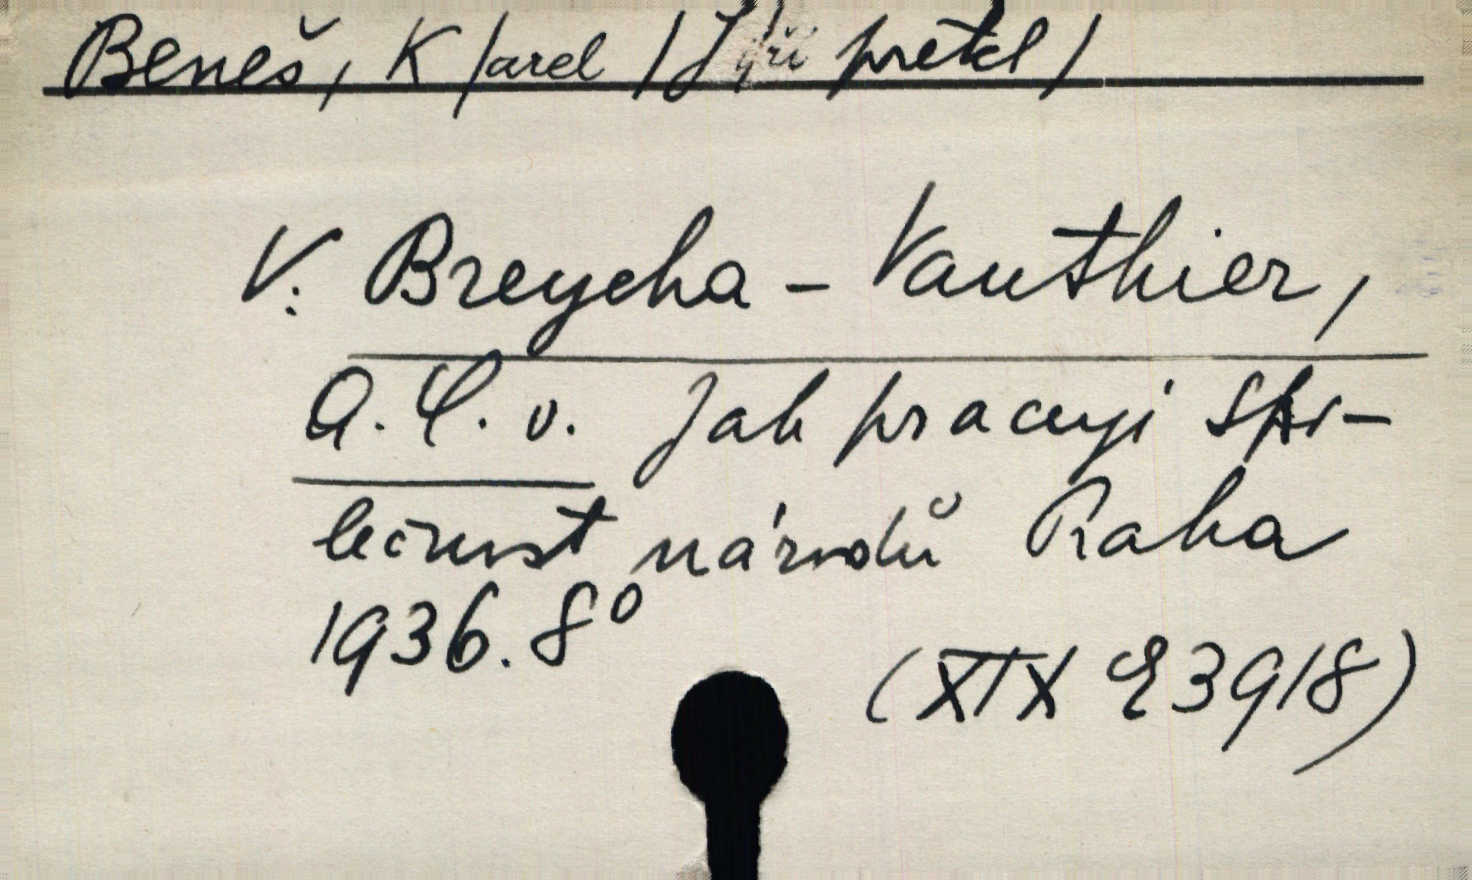 Beneš, K /arel / J iří pretel /
V. Breycha-Vauthier,
A. C. v. Jak pracuji spo-
lečnost národů Praha
1936. 8°
(XIX E 3918)